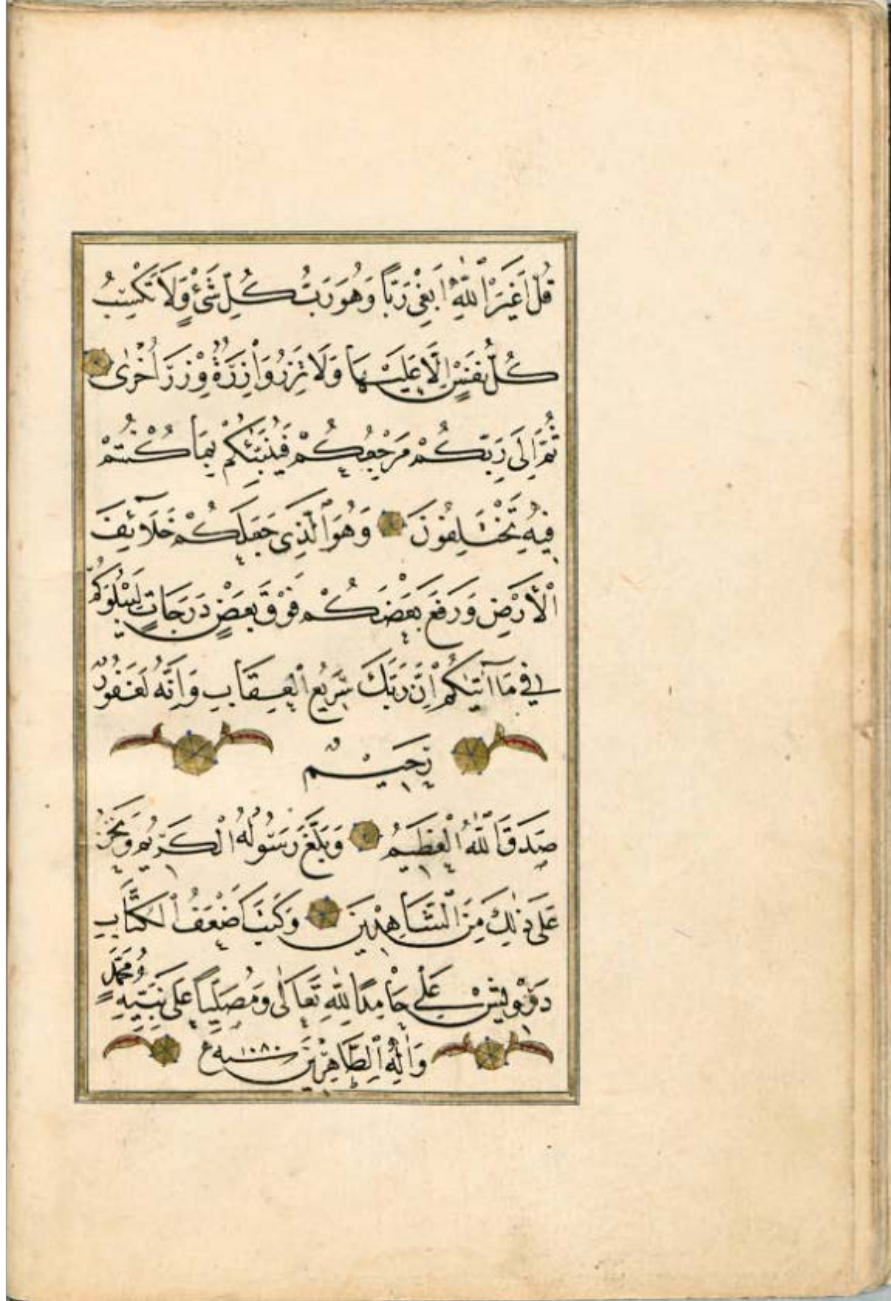 قُلْ اَغَيْرَ اللّٰهِ اَبْغِى رَبًّا وَهُوَ رَبُّ كُلِّ شَىْءٍ وَلَا تَكْسِبُ
كُلُّ نَفْسٍ اِلَّا عَلَيْهَا وَلَا تَزِرُ وَازِرَةٌ وِزْرَ اُخْرٰى
ثُمَّ اِلٰى رَبِّكُمْ مَرْجِعُكُمْ فَيُنَبِّئُكُمْ بِمَا كُنْتُمْ
فِيهِ تَخْتَلِفُونَ وَهُوَ الَّذِى جَعَلَكُمْ خَلَآئِفَ
الْاَرْضِ وَرَفَعَ بَعْضَكُمْ فَوْقَ بَعْضٍ دَرَجَاتٍ لِيَبْلُوَكُمْ
فِى مَا اٰتٰيكُمْ اِنَّ رَبَّكَ سَرِيعُ الْعِقَابِ وَاِنَّهُ لَغَفُورٌ
رَحِيمٌ
صَدَقَ اللّٰهُ الْعَظِيمُ وَبَلَّغَ رَسُولُهُ الْكَرِيمُ وَنَحْنُ
عَلٰى ذٰلِكَ مِنَ الشَّاهِدِينَ وَكَتَبَ اَضْعَفُ الْكُتَّابِ
دَرْوِيشْ عَلِى حَامِدًا لِلّٰهِ تَعَالٰى وَمُصَلِّيًا عَلٰى نَبِيِّهِ مُحَمَّدٍ
وَاٰلِهِ الطَّاهِرِينَ سنه ١٠٨٠